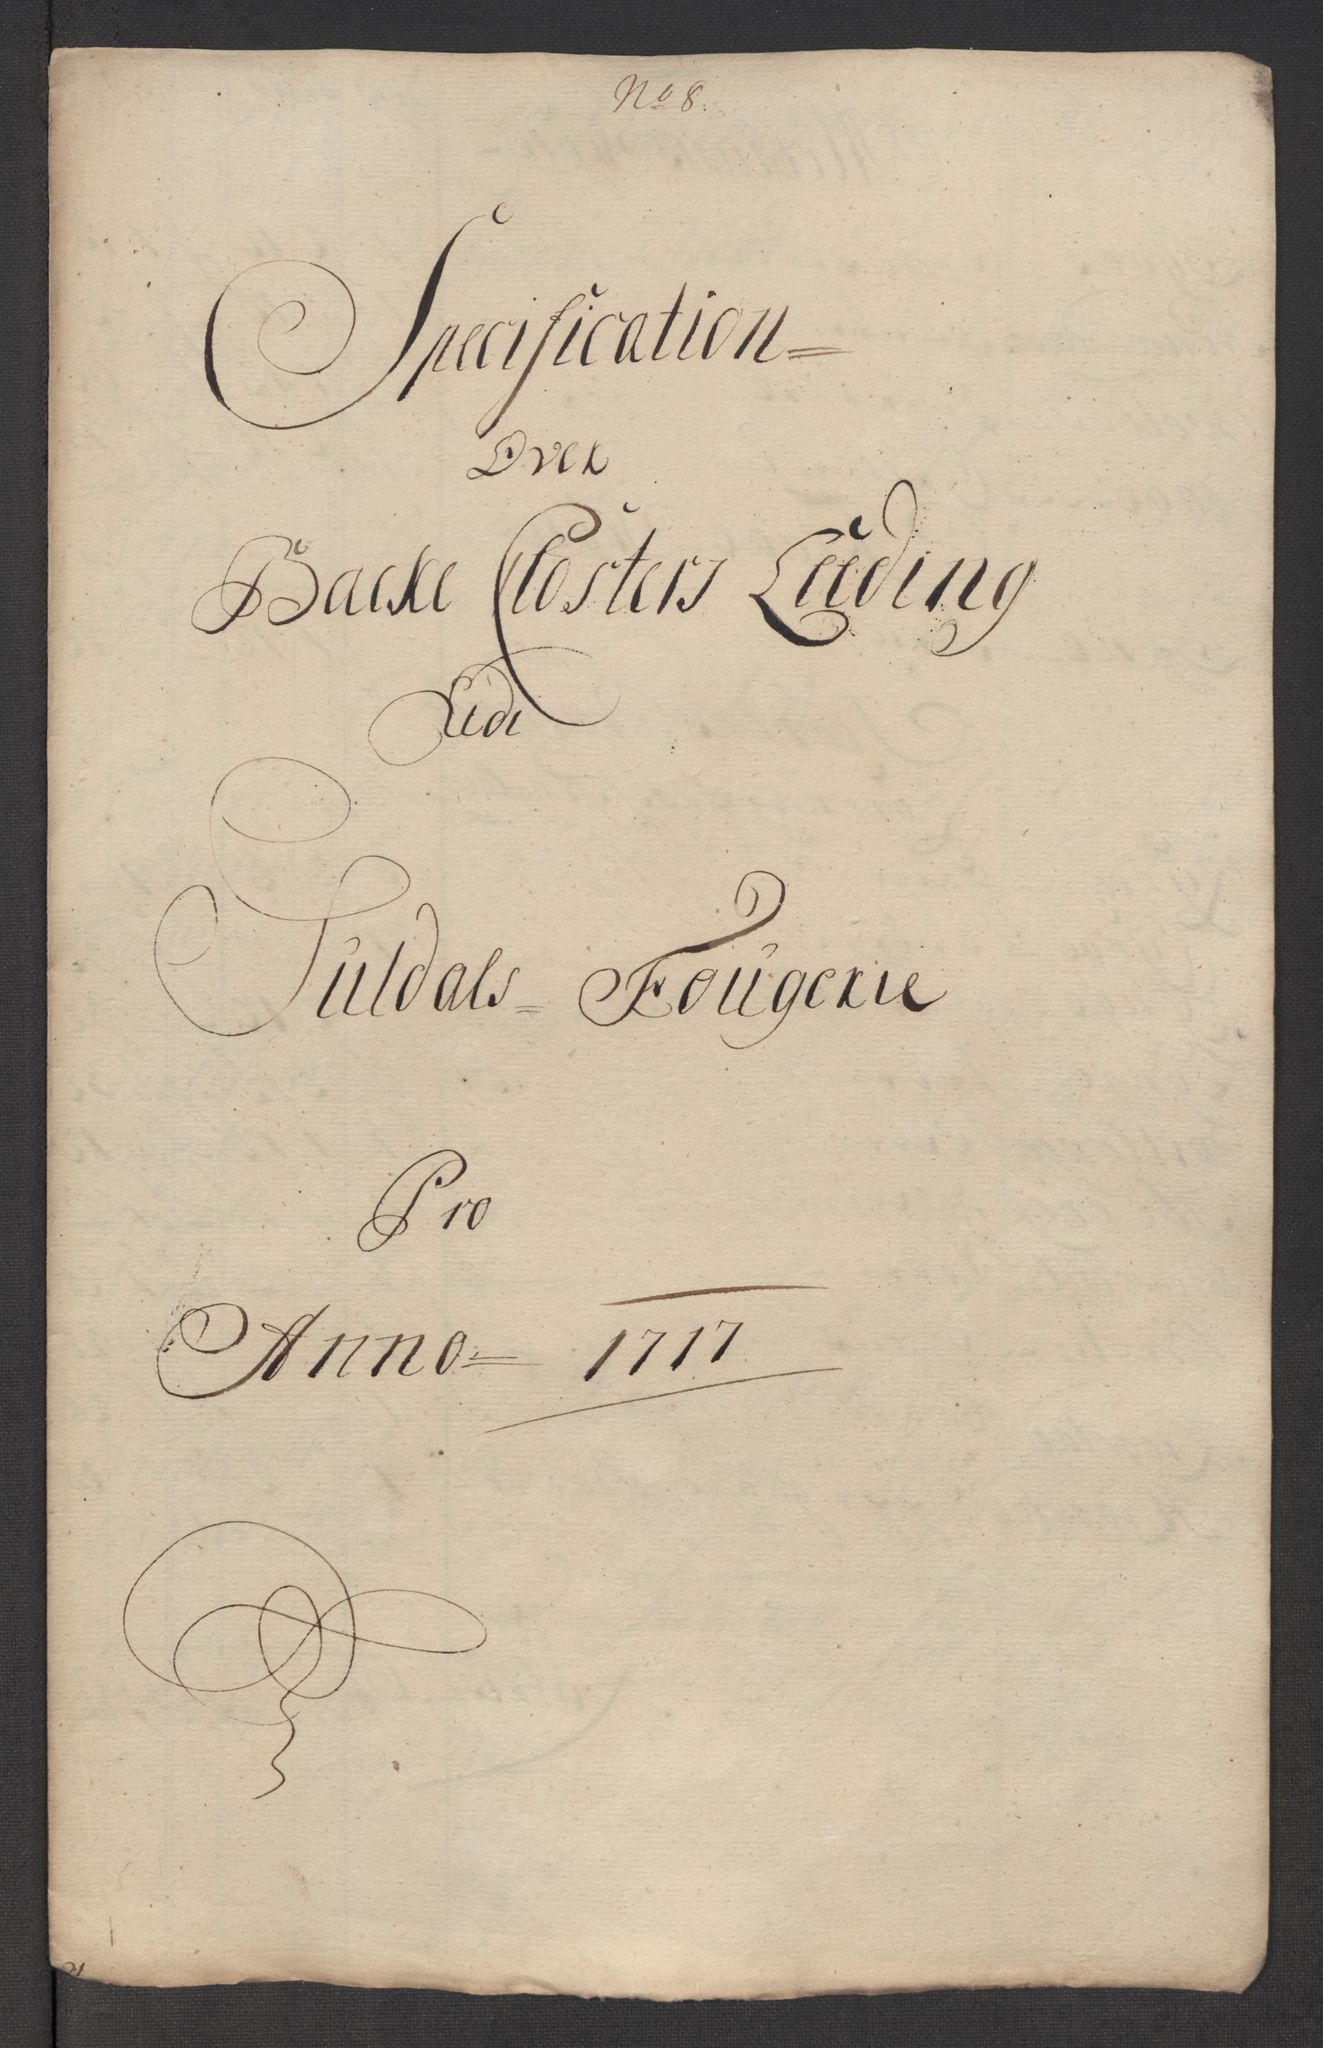 No 8.
Specification=
Over
Backe Closters Leeding
Udi
Suldals= Fougerie
Pro
Anno= 1717